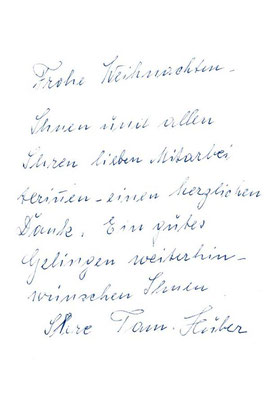 Frohe Weihnachten -
Ihnen und allen
Ihren lieben Mitarbei
terinnen - einen herzlichen
Dank. Ein gutes
Gelingen weiterhin -
wünschen Ihnen
Ihre Fam. Huber